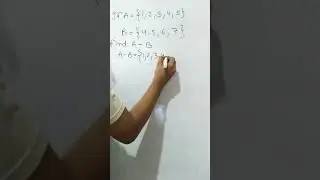 If A = {1, 2, 3, 4, 5}
B = {4, 5, 6, 7}
Find A - B
A - B = {1, 2, 3